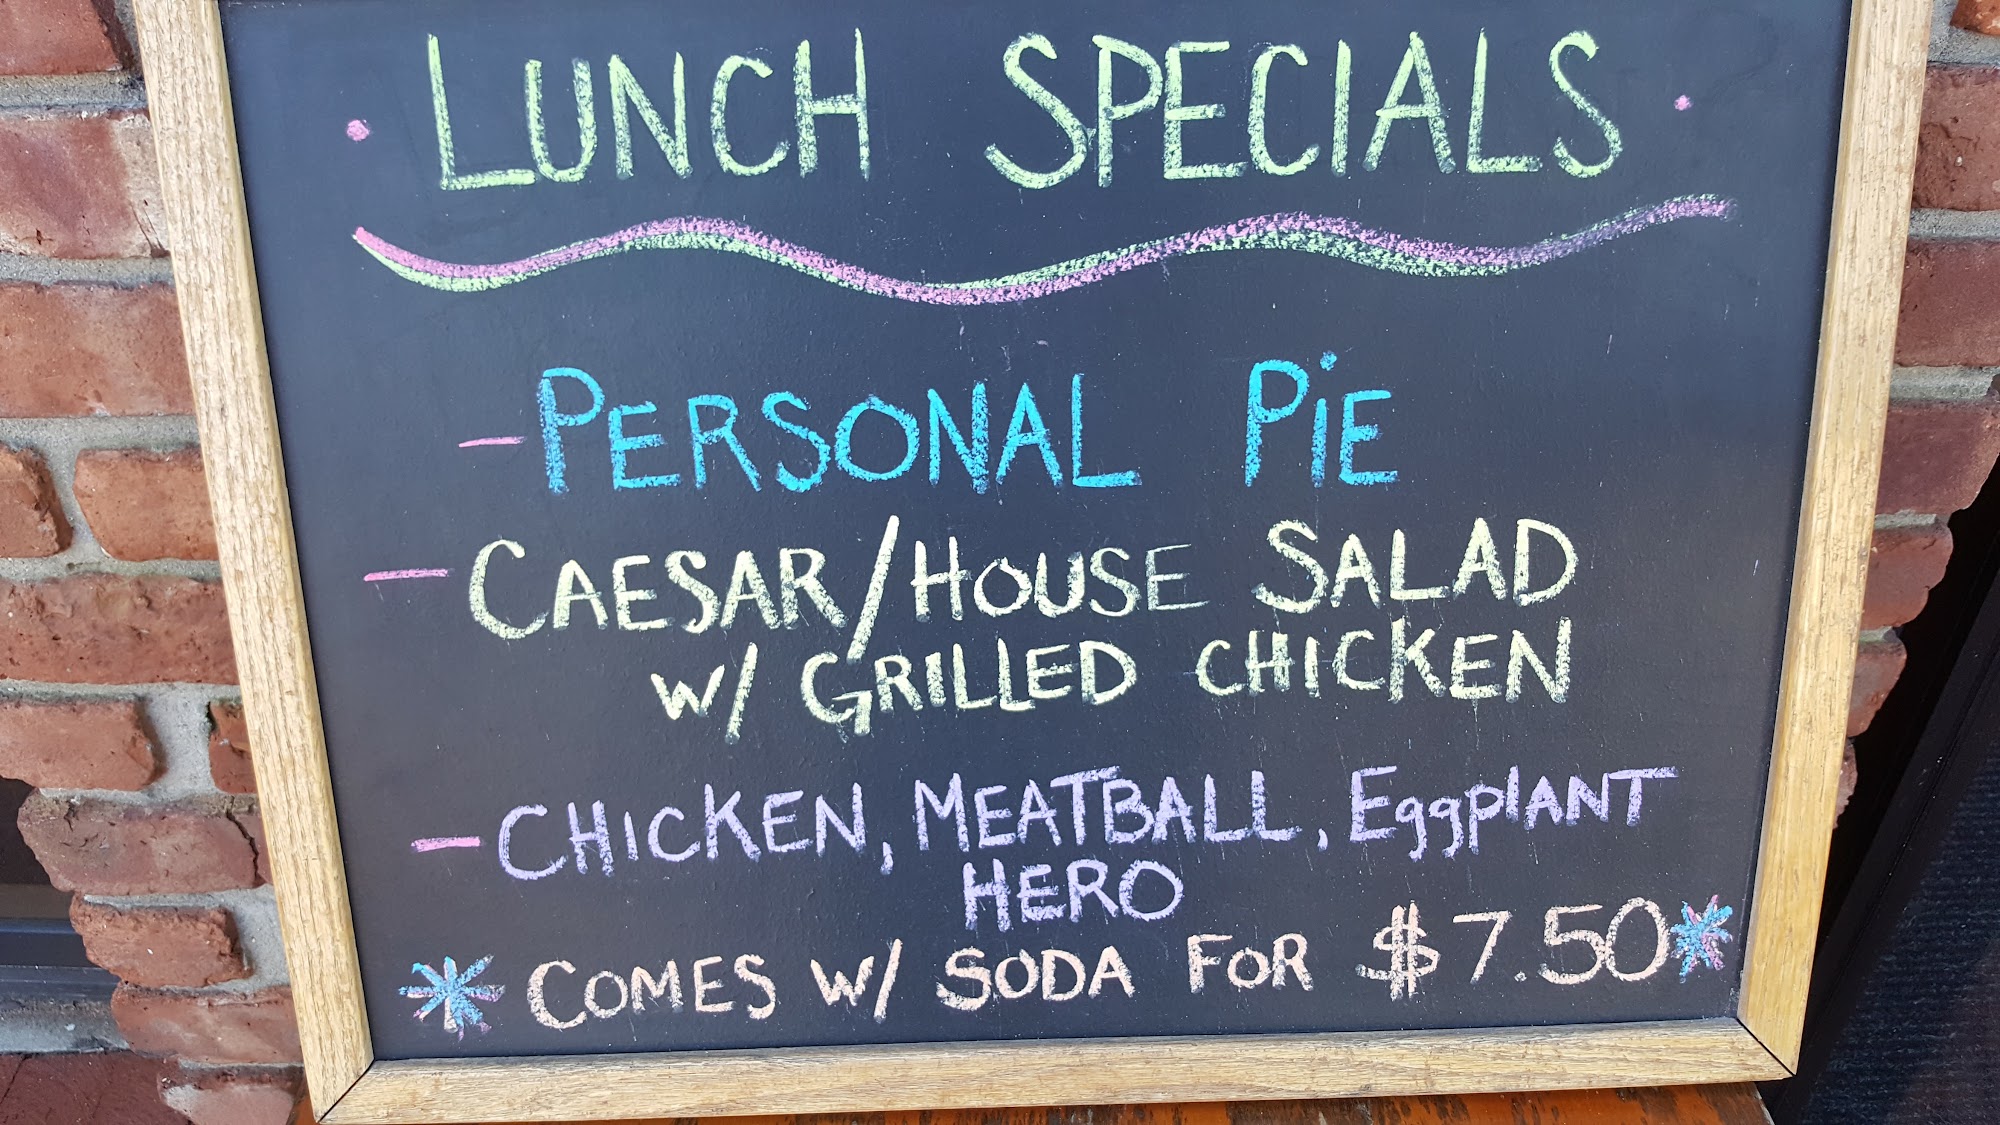 • LUNCH SPECIALS •
- PERSONAL PiE
- CAESAR/HOUSE SALAD
W/ GRILLED CHICKEN
- CHICKEN, MEATBALL, EggplANT
HERO
* COMES W/ SODA FOR $7.50 *